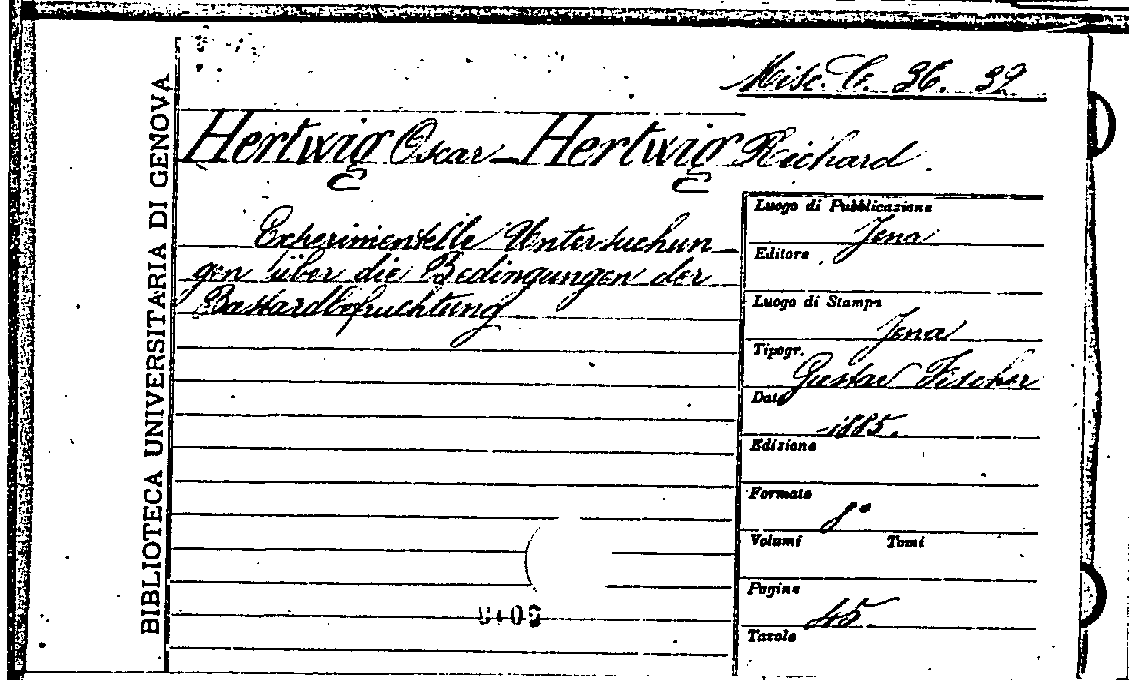 BIBLIOTECA UNIVERSITARIA DI GENOVA
Misc. C. 36. 39
Hertwig Oscar - Hertwig Richard.
Experimentelle Untersuchun-
gen über die Bedingungen der
Bastardbefruchtung
Luogo di Pubblicazione
Jena
Editore
Luogo di Stampa
Jena
Tipogr.
Gustav Fischer
Data
1885.
Edizione
Formato
8°
Volumi Tomi
Pagine
45.
Tavole